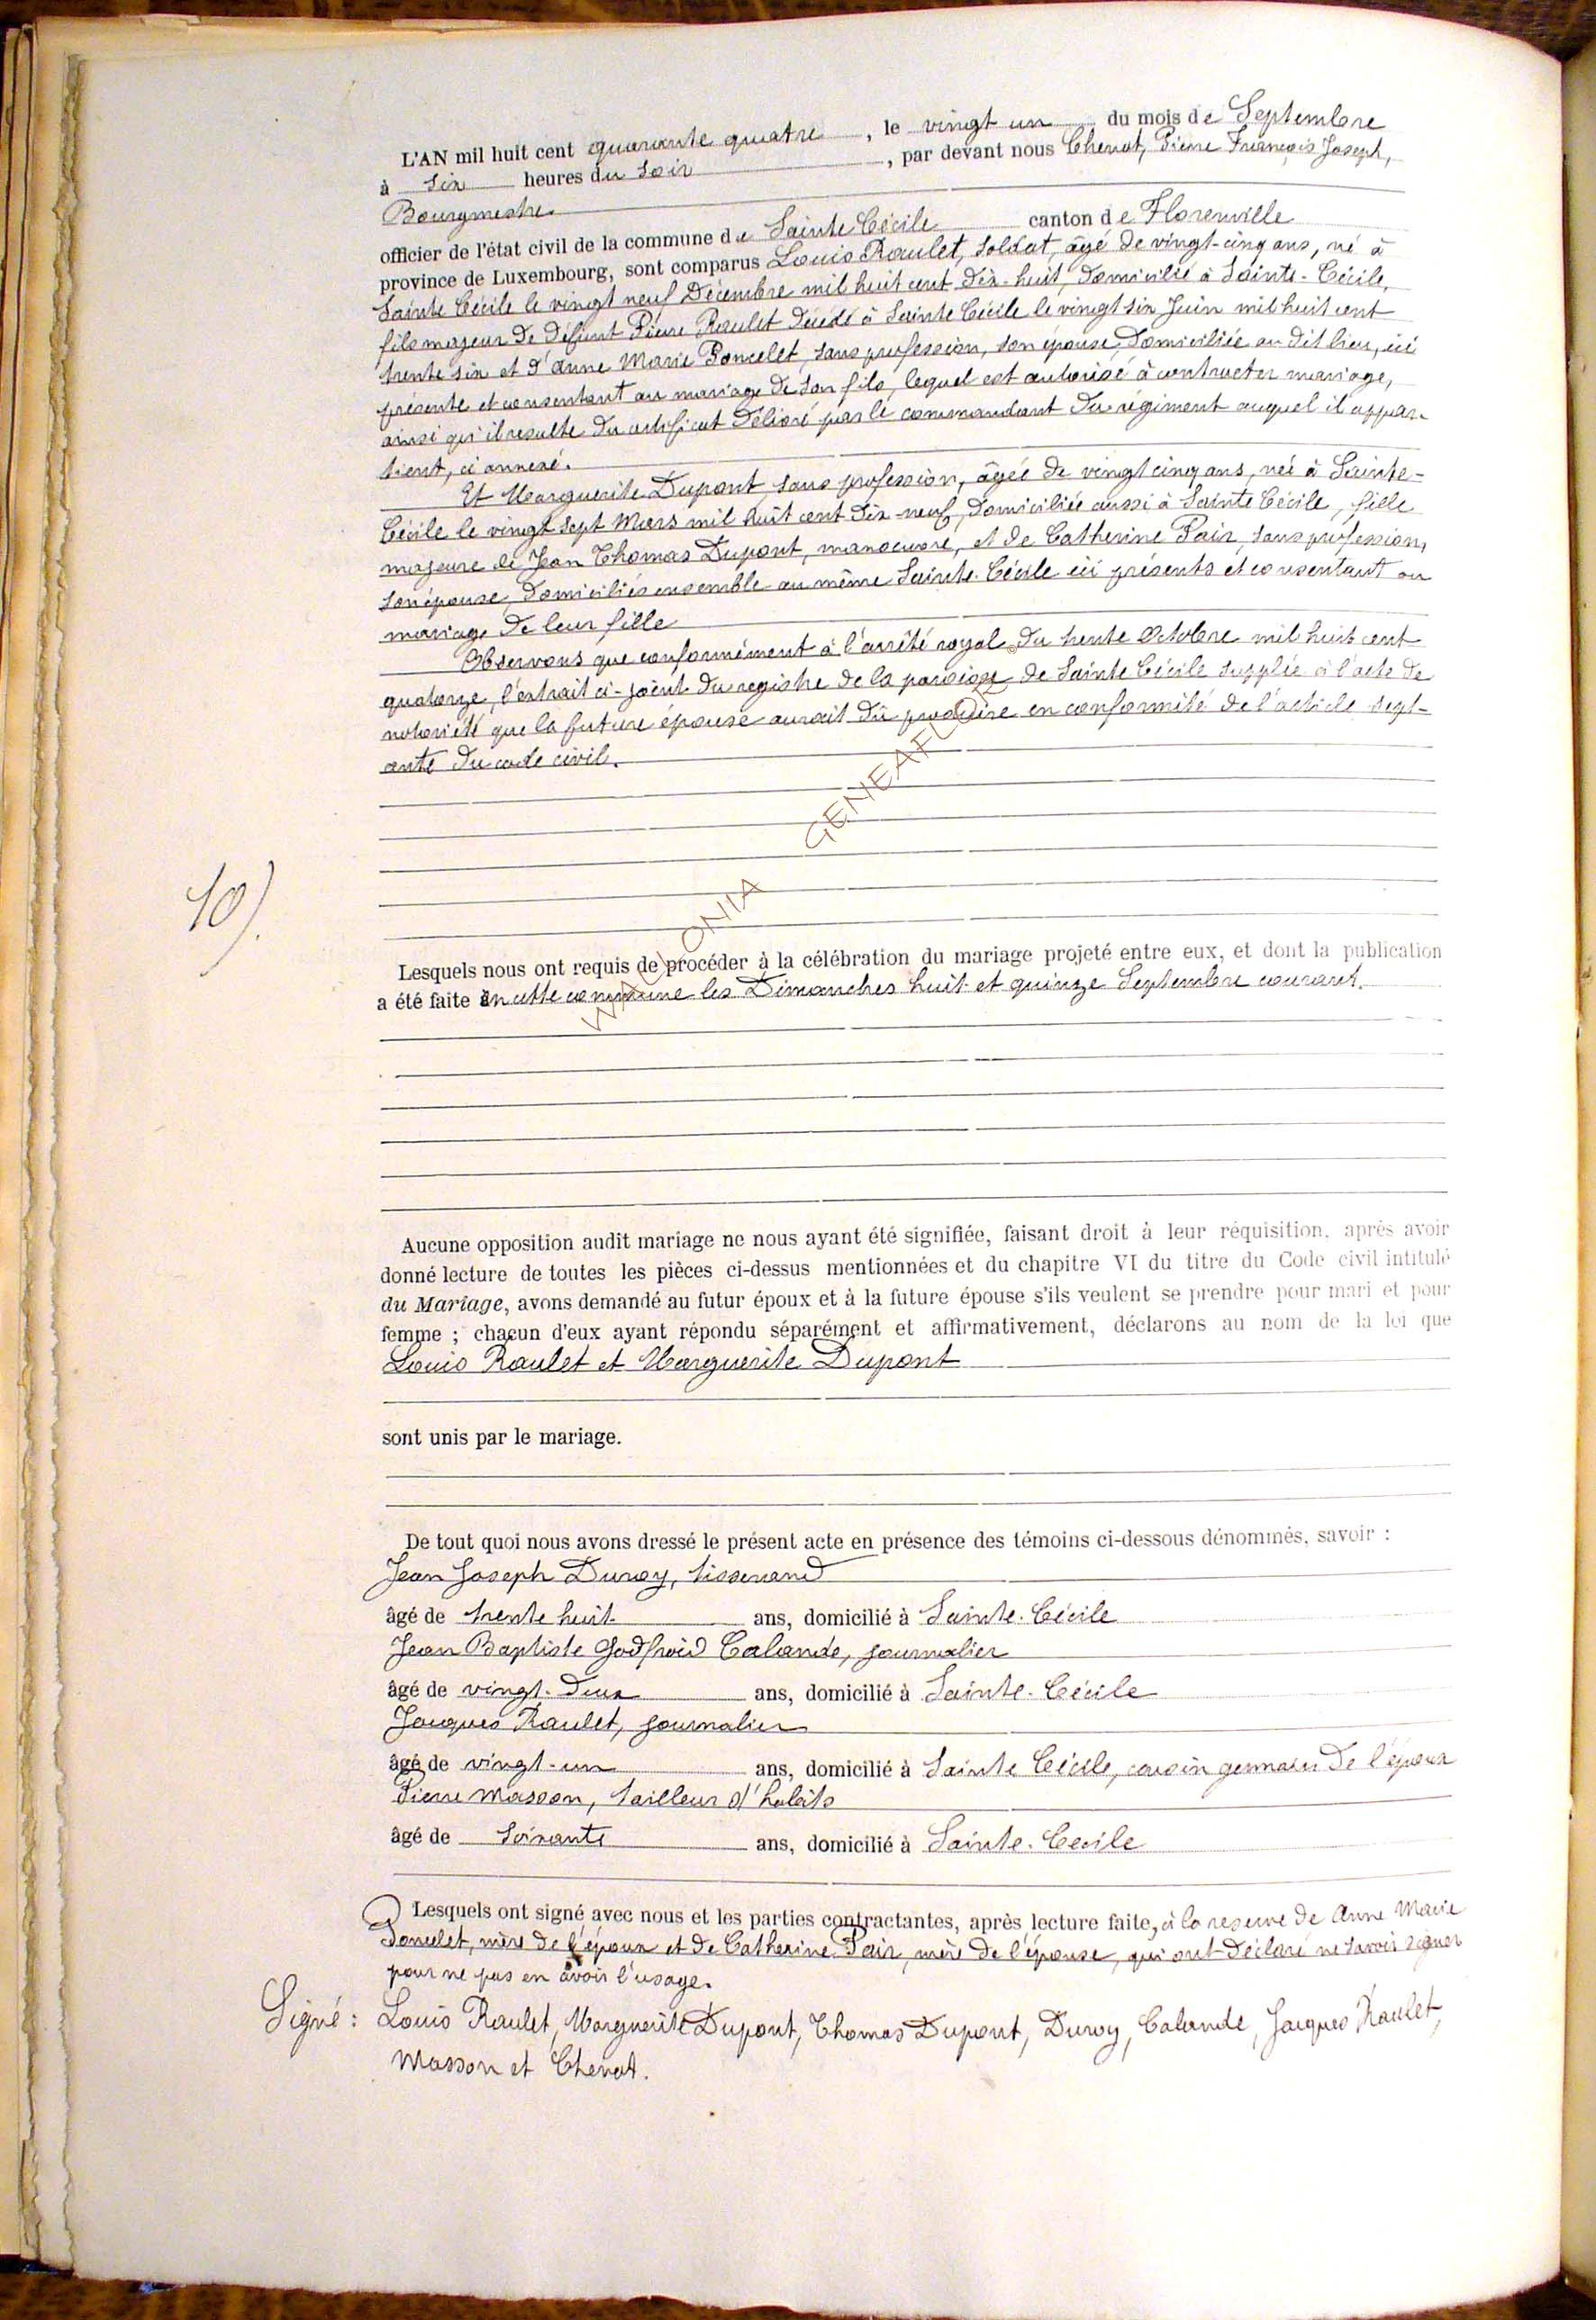 L'AN mil huit cent quarante quatre, le vingt un du mois de Septembre
à six heures du soir, par devant nous Chenot, Pierre François Joseph,
Bourgmestre.
officier de l'état civil de la commune de Sainte Cécile canton de Florenville
province de Luxembourg, sont comparus Louis Raulet, soldat, âgé de vingt-cinq ans, né à
Sainte Cécile le vingt neuf Décembre mil huit cent dix-huit, domicilié à Sainte-Cécile,
fils majeur de défunt Pierre Raulet décédé à Sainte Cécile le vingt six Juin mil huit cent
trente six et d'anne Marie Poncelet, sans profession, son épouse, domiciliée au dit lieu, ici
présente et consentant au mariage de son fils, lequel est autorisé à contracter mariage,
ainsi qu'il resulte du certificat délivré par le commandant du régiment auquel il appar-
tient, ci annexé.
Et Marguerite Dupont, sans profession, âgée de vingt cinq ans, née à Sainte-
Cécile le vingt sept Mars mil huit cent dix-neuf, domiciliée aussi à Sainte Cécile, fille
majeure de Jean Thomas Dupont, manoeuvre, et de Catherine Pair, sans profession,
son épouse, domiciliés ensemble au même Sainte-Cécile ici présents et consentant au
mariage de leur fille
Observons que conformément à l'arrêté royal du trente Octobre mil huit cent
quatorze, l'extrait ci-joint du registre de la paroisse de Sainte Cécile supplée à l'acte de
notoriété que la future épouse aurait dû produire en conformité de l'article sept-
ante du code civil.
WALLONIA GENEAFLORE
10).
Lesquels nous ont requis de procéder à la célébration du mariage projeté entre eux, et dont la publication
a été faite en cette commune les Dimanches huit et quinze Septembre courant.
Aucune opposition audit mariage ne nous ayant été signifiée, faisant droit à leur réquisition, après avoir
donné lecture de toutes les pièces ci-dessus mentionnées et du chapitre VI du titre du Code civil intitulé
du Mariage, avons demandé au futur époux et à la future épouse s'ils veulent se prendre pour mari et pour
femme ; chacun d'eux ayant répondu séparément et affirmativement, déclarons au nom de la loi que
Louis Raulet et Marguerite Dupont
sont unis par le mariage.
De tout quoi nous avons dressé le présent acte en présence des témoins ci-dessous dénommés, savoir :
Jean Joseph Duroy, tisserand
âgé de trente huit ans, domicilié à Sainte-Cécile
Jean Baptiste Godfroid Calande, journalier
âgé de vingt-deux ans, domicilié à Sainte-Cécile
Jacques Raulet, journalier
âgé de vingt-un ans, domicilié à Sainte Cécile, cousin germain de l'époux
Pierre Masson, tailleur d'habits
âgé de soixante ans, domicilié à Sainte-Cecile
Lesquels ont signé avec nous et les parties contractantes, après lecture faite, à la reserve de Anne Marie
Poncelet, mère de l'époux et de Catherine Pair, mère de l'épouse, qui ont déclaré ne savoir signer
pour ne pas en avoir l'usage.
Signé : Louis Raulet, Marguerite Dupont, Thomas Dupont, Duroy, Calande, Jacques Raulet,
Masson et Chenot.